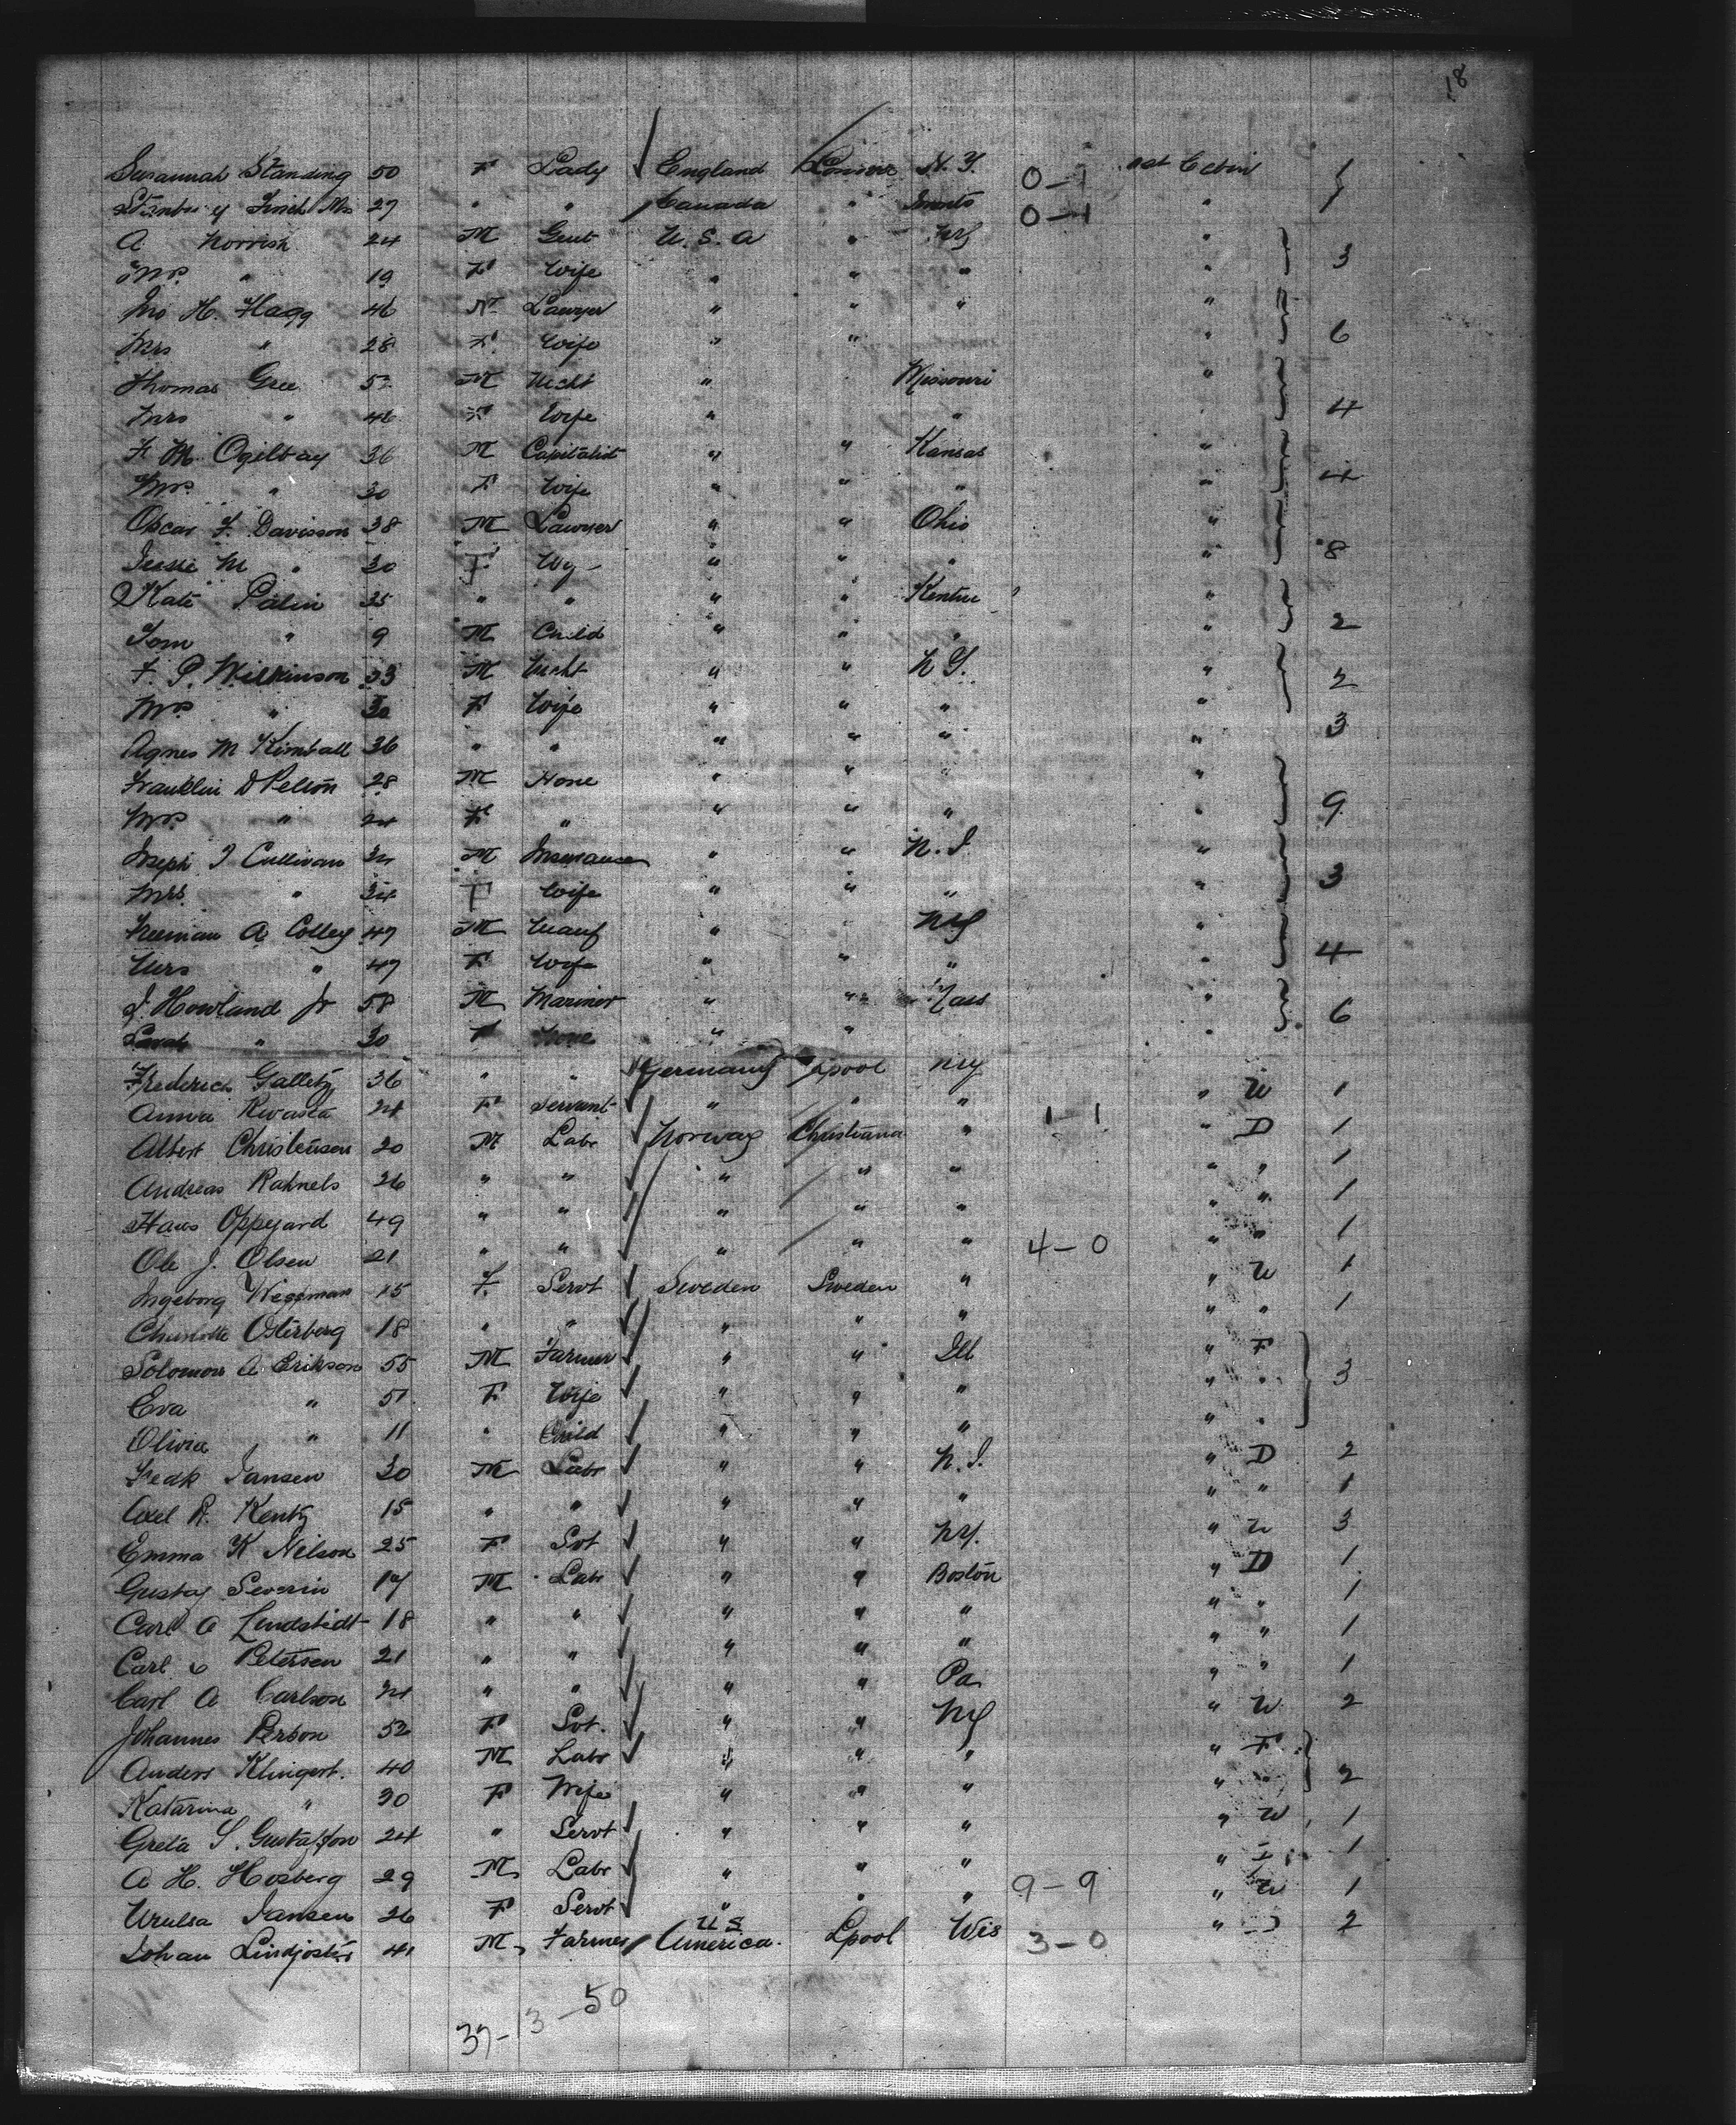 18
Susannah Standing 50 F Lady England London N.Y. 0-1 2nd Cabin 1
Finch Mrs 27 " " Canada " 0-1 " 1
A. Norrish 24 M Gent U.S.A " NY "
Mrs " 19 F Wife " " " " 3
Jno H. Flagg 46 M Lawyer " " " "
Mrs " 28 F Wife " " " 6
Thomas Gree M Mcht " Missouri "
Mrs " 46 F Wife " " " 4
F. M. Ogilbay 36 M Capitalist " " Kansas "
Mrs " 30 F Wife " " " " 4
Oscar F. Davisson 38 M Lawyer " " Ohio "
Jessie M " 30 F " " " " 8
Kate Palin 35 " " " " "
Tom " 9 M Child " " " " 2
F. P. Wilkinson 33 M Mcht " " N Y. "
Mrs " 30 F Wife " " " " 2
Agnes M Kimball 36 " " " " " " 3
Franklin D Pelton 28 M None " " " "
Mrs " 24 F " " " " " 9
Joseph J Cullivan 34 M Insurance " " N.J. "
Mrs. " 34 F Wife " " " " 3
Freeman A Colley 47 M Manuf " NY "
Mrs " 47 F Wife " " " 4
J. Howland Jr 58 M Mariner " " Mass "
" 30 F None " " " 6
Frederick Galletz 36 " " Germany Lpool NY " W 1
Anna 24 F Servant " " " 1-1 " D 1
Albert Christensen 20 M Labr Norway Christiana " " " 1
Andreas Rahnels 26 " " " " " " " 1
Hans Oppegard 49 " " " " " " " 1
Ole J. Olsen 21 " " " " " 4-0 " W 1
Ingeborg 15 F. Servt Sweden Sweden " " " 1
Charlotte Osterberg 18 " " " " "
Solomon A. Erikson 55 M Farmer " " Ill " F
Eva " 51 F Wife " " " " " 3
Olivia " 11 " Child " " " " "
Fredk Jansen 30 M Labr " " N.J. " D 2
Axel R. Kentz 15 " " " " " " " 1
Emma K Nilson 25 F Svt " " NY. " W 3
Gustaf Severin 17 M Labr " " Boston " D 1
Carl A Lindstedt 18 " " " " " " " 1
Carl Petersen 21 " " " " " " " 1
Carl A Carlson 24 " " " " Pa " " 1
Johannes Person 52 F Svt. " " NY " W 2
Anders Klingert. 40 M Labr " " " " F
Katarina " 30 F Wife " " " " " 2
Greta S. Gustafson 24 " Servt " " " " W 1
A H. Hosberg 29 M Labr " " " 9-9 " 1
Jansen 26 F Servt " " " " W 1
Johan 41 M Farmer U S America. Lpool Wis 3-0 " 2
37-13-50